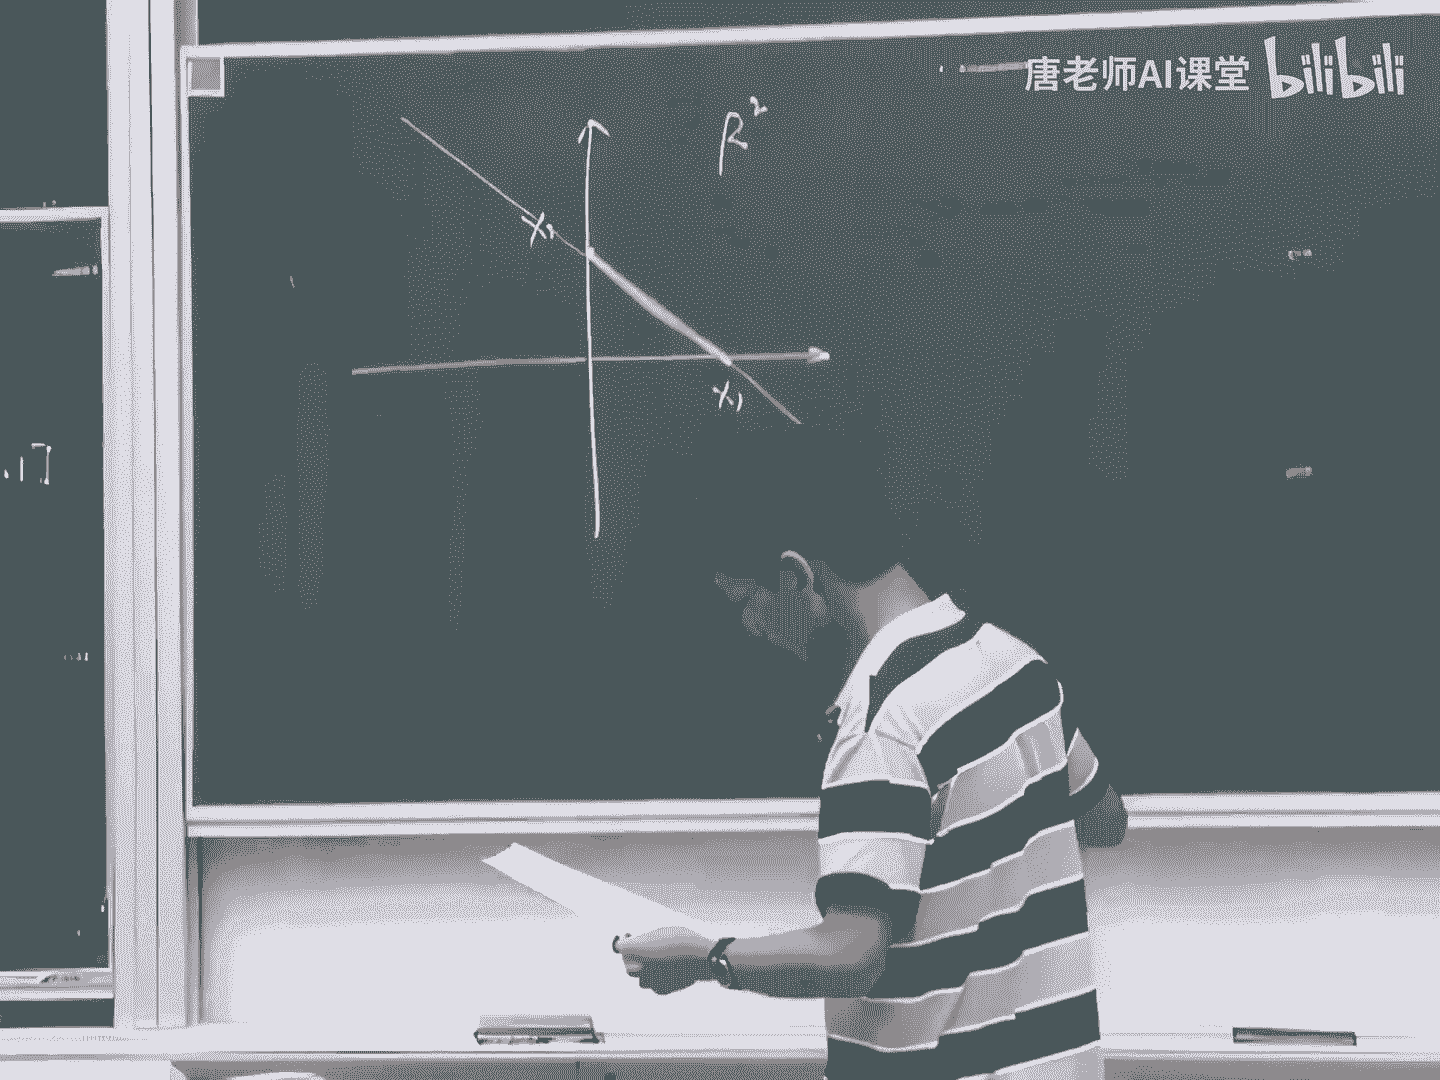 唐老师AI课堂 bilibili
R²
X₁
X₁